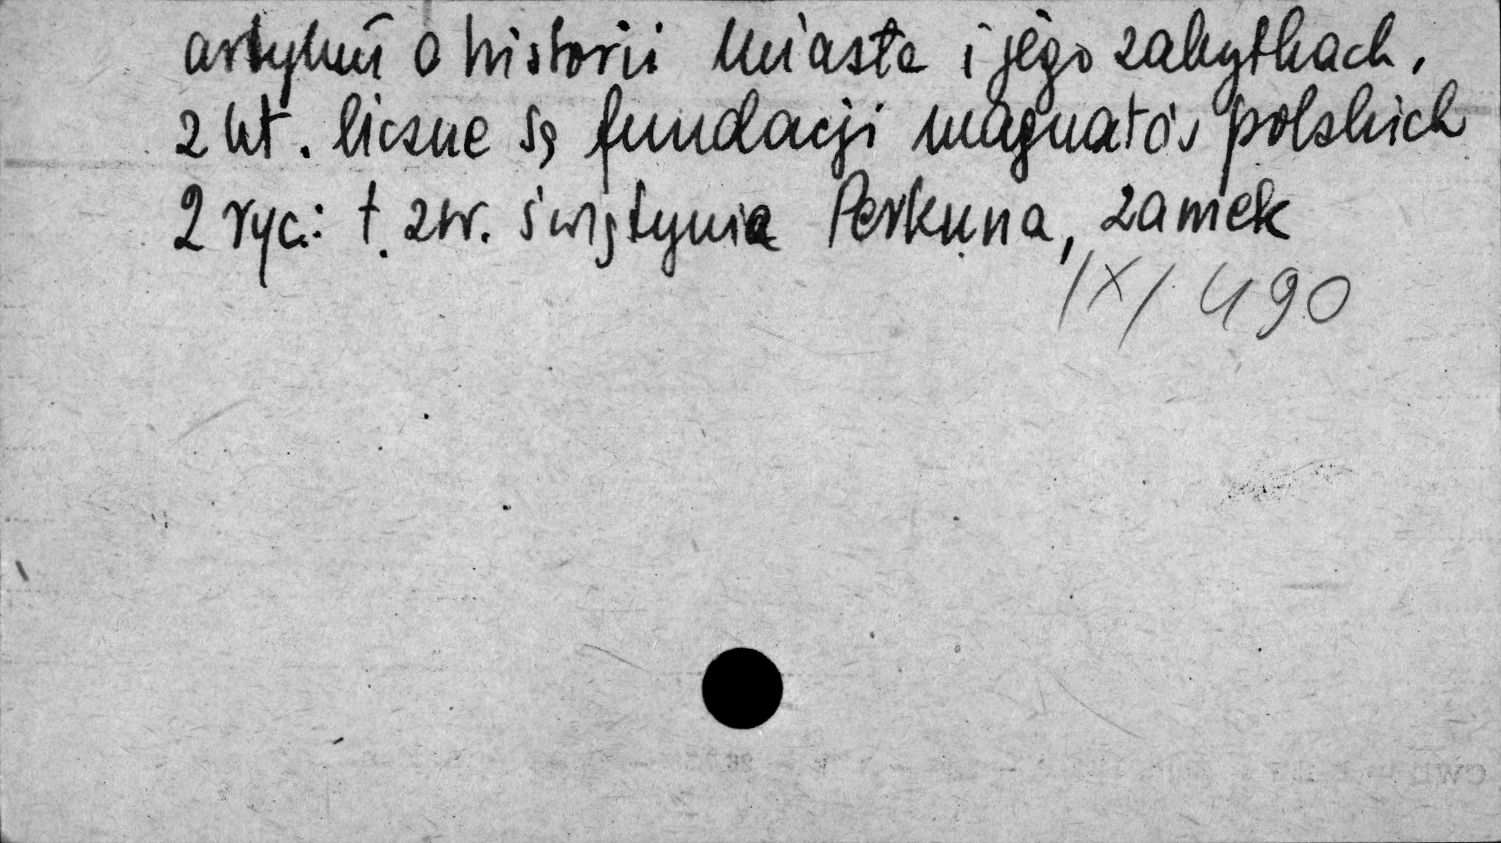 artykuł o historii miasta i jego zabytkach,
z kt. liczne są fundacji magnatów polskich
2 ryc.: t. zw. świątynia Perkuna, zamek
IX/490